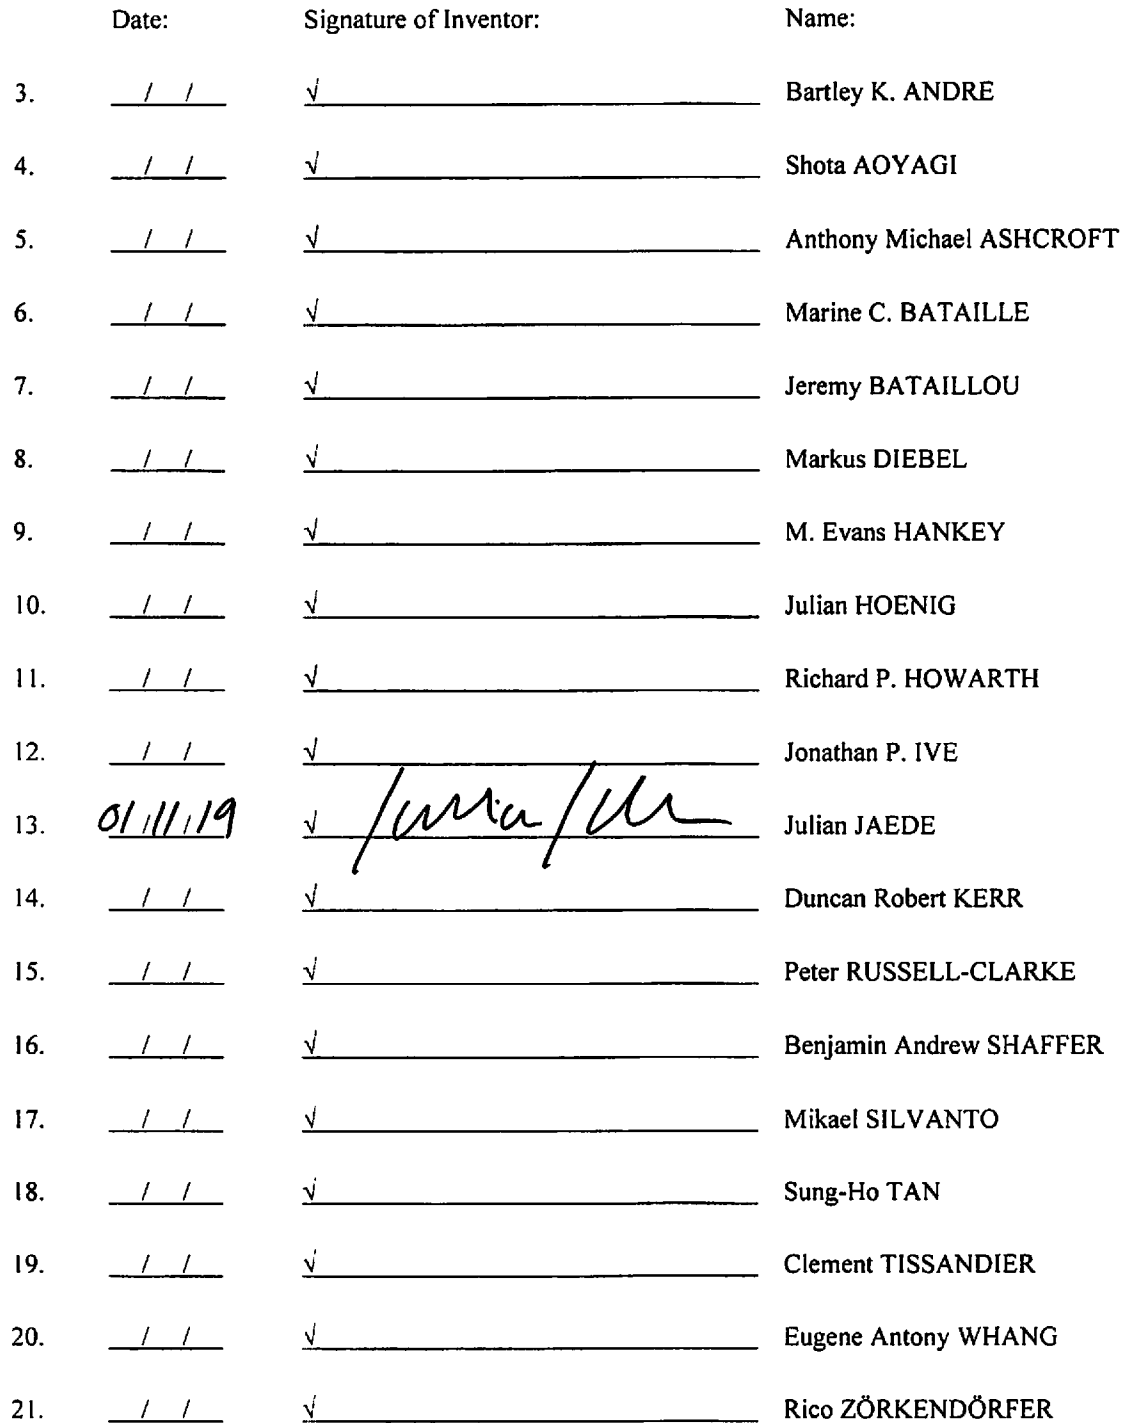 Date: Signature of Inventor: Name:
3. / / √ Bartley K. ANDRE
4. / / √ Shota AOYAGI
5. / / √ Anthony Michael ASHCROFT
6. / / √ Marine C. BATAILLE
7. / / √ Jeremy BATAILLOU
8. / / √ Markus DIEBEL
9. / / √ M. Evans HANKEY
10. / / √ Julian HOENIG
11. / / √ Richard P. HOWARTH
12. / / √ Jonathan P. IVE
13. 01/11/19 √ Julian JAEDE
14. / / √ Duncan Robert KERR
15. / / √ Peter RUSSELL-CLARKE
16. / / √ Benjamin Andrew SHAFFER
17. / / √ Mikael SILVANTO
18. / / √ Sung-Ho TAN
19. / / √ Clement TISSANDIER
20. / / √ Eugene Antony WHANG
21. / / √ Rico ZÖRKENDÖRFER